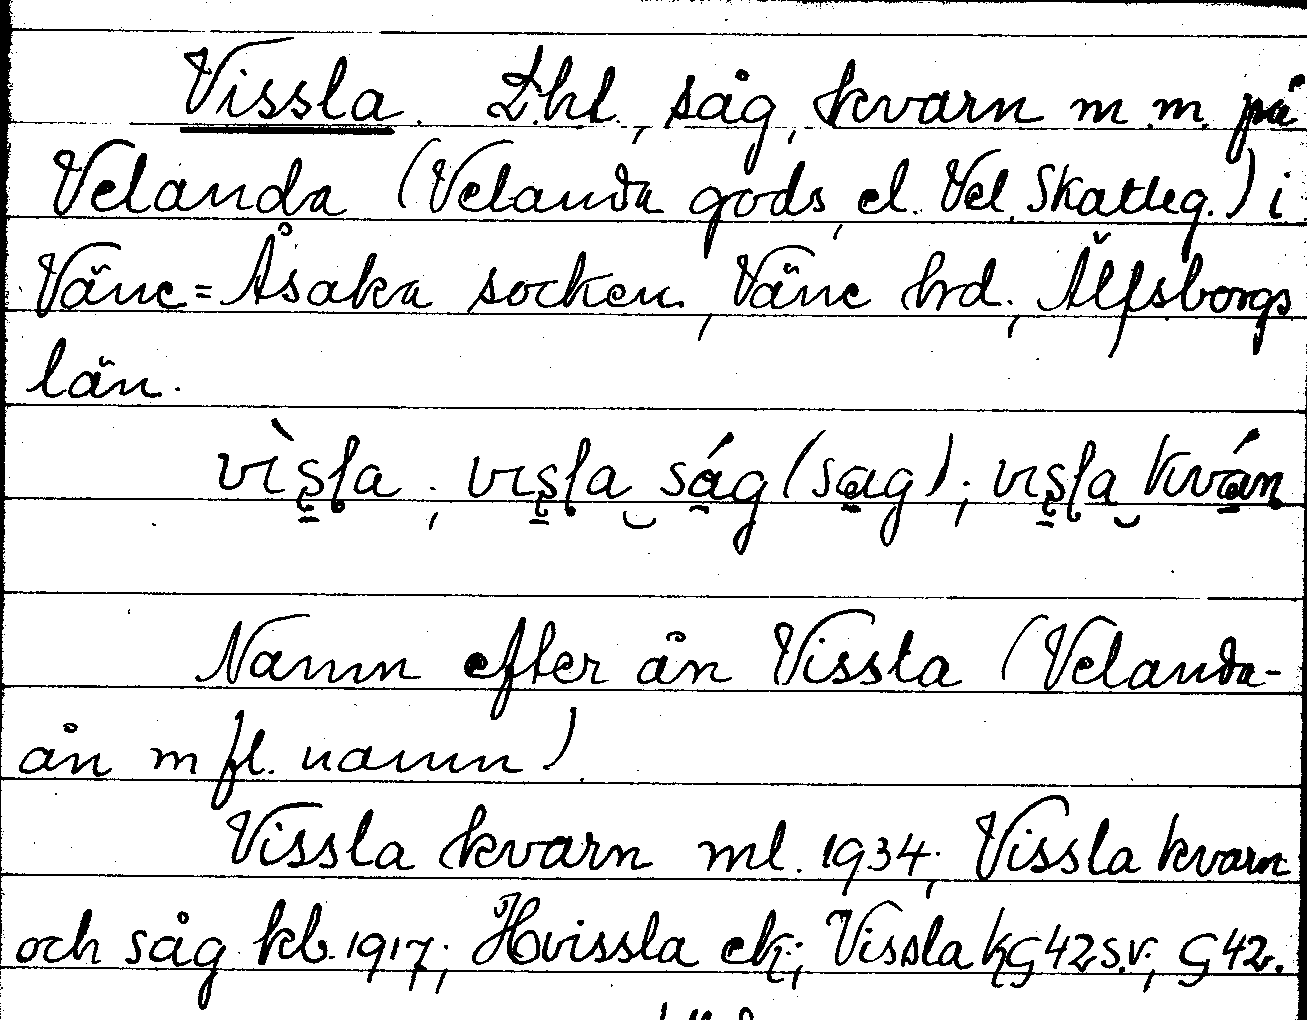 Vissla. Lht., såg, kvarn m.m. på
Velanda (Velanda gods, el. Vel. Skatteg.) i
Väne=Åsaka socken, Väne hrd; Älfsborgs
län.
vìs̠ḷa ; vɪs̠ḷa‿ság (sag) ; vɪs̠ḷa‿kván
Namn efter ån Vissla (Velanda-
ån m fl. namn)
Vissla kvarn ml. 1934; Vissla kvarn
och såg kb. 1917; Hvissla ek; Vissla kG42s.v; G42.